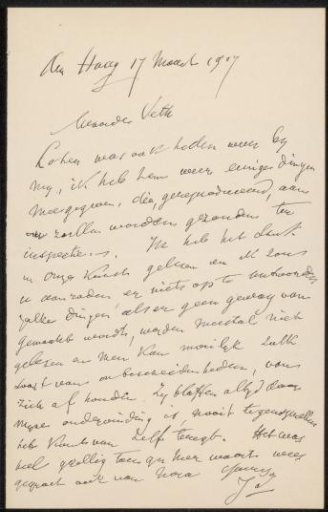 Den Haag 17 Maart 1907
Waarde Veth
Cohen was ook heden weer by
my, ik heb hem weer eenige dingen
meegegeven, die, gereproduceerd, aan
u zullen worden gezonden ter
inspectie. Ik heb het stuk
in Onze Kunst gelezen en ik zou
u aanraden er niets op te antwoorden
zulke dingen als er geen gewag van
gemaakt wordt, worden meestal niet
gelezen en men kan moeilyk zulk
soort van onbescheidenheden, van
zich af houden. Zy blaffen altyd door
myne ondervinding is nooit tegenspreken
het komt van zelf terecht. Het was
heel gezellig toen gy hier waart, wees
gegroet ook van